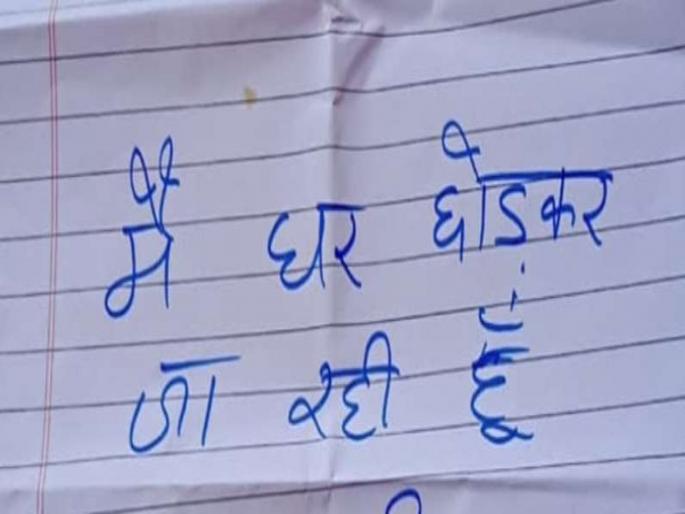 मै घर छोड़कर
जा रही हूँ